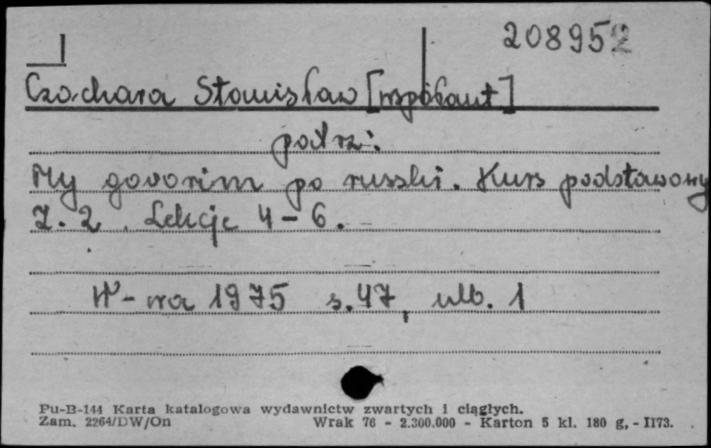 208952
Czochara Stanisław [współaut]
patrz:
My govorim po russki. Kurs podstawowy
Z. 2. Lekcje 4-6.
W-wa 1975 s. 47, nlb. 1
Pu-B-144 Karta katalogowa wydawnictw zwartych i ciągłych.
Zam. 2264/DW/On Wrak 76 - 2.300.000 - Karton 5 kl. 180 g, - I173.